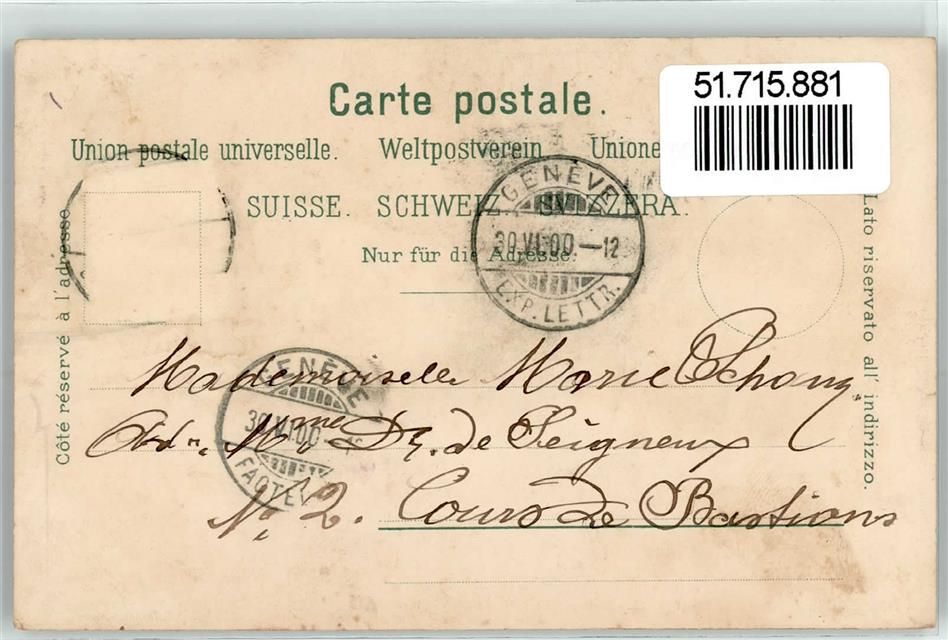 51.715.881
Carte postale.
Union postale universelle. Weltpostverein Unione
SUISSE. SCHWEIZ. SVIZZERA.
Nur für die Adresse.
Côté réservé à l'adresse
Lato riservato all' indirizzo.
GENÈVE
30.VI.00—12
EXP. LETTR.
GENÈVE
30.VI.00
FACTEU
Mademoiselle Marie
Mme Dr. de Seigneux
No. 2. Cours de Bastions